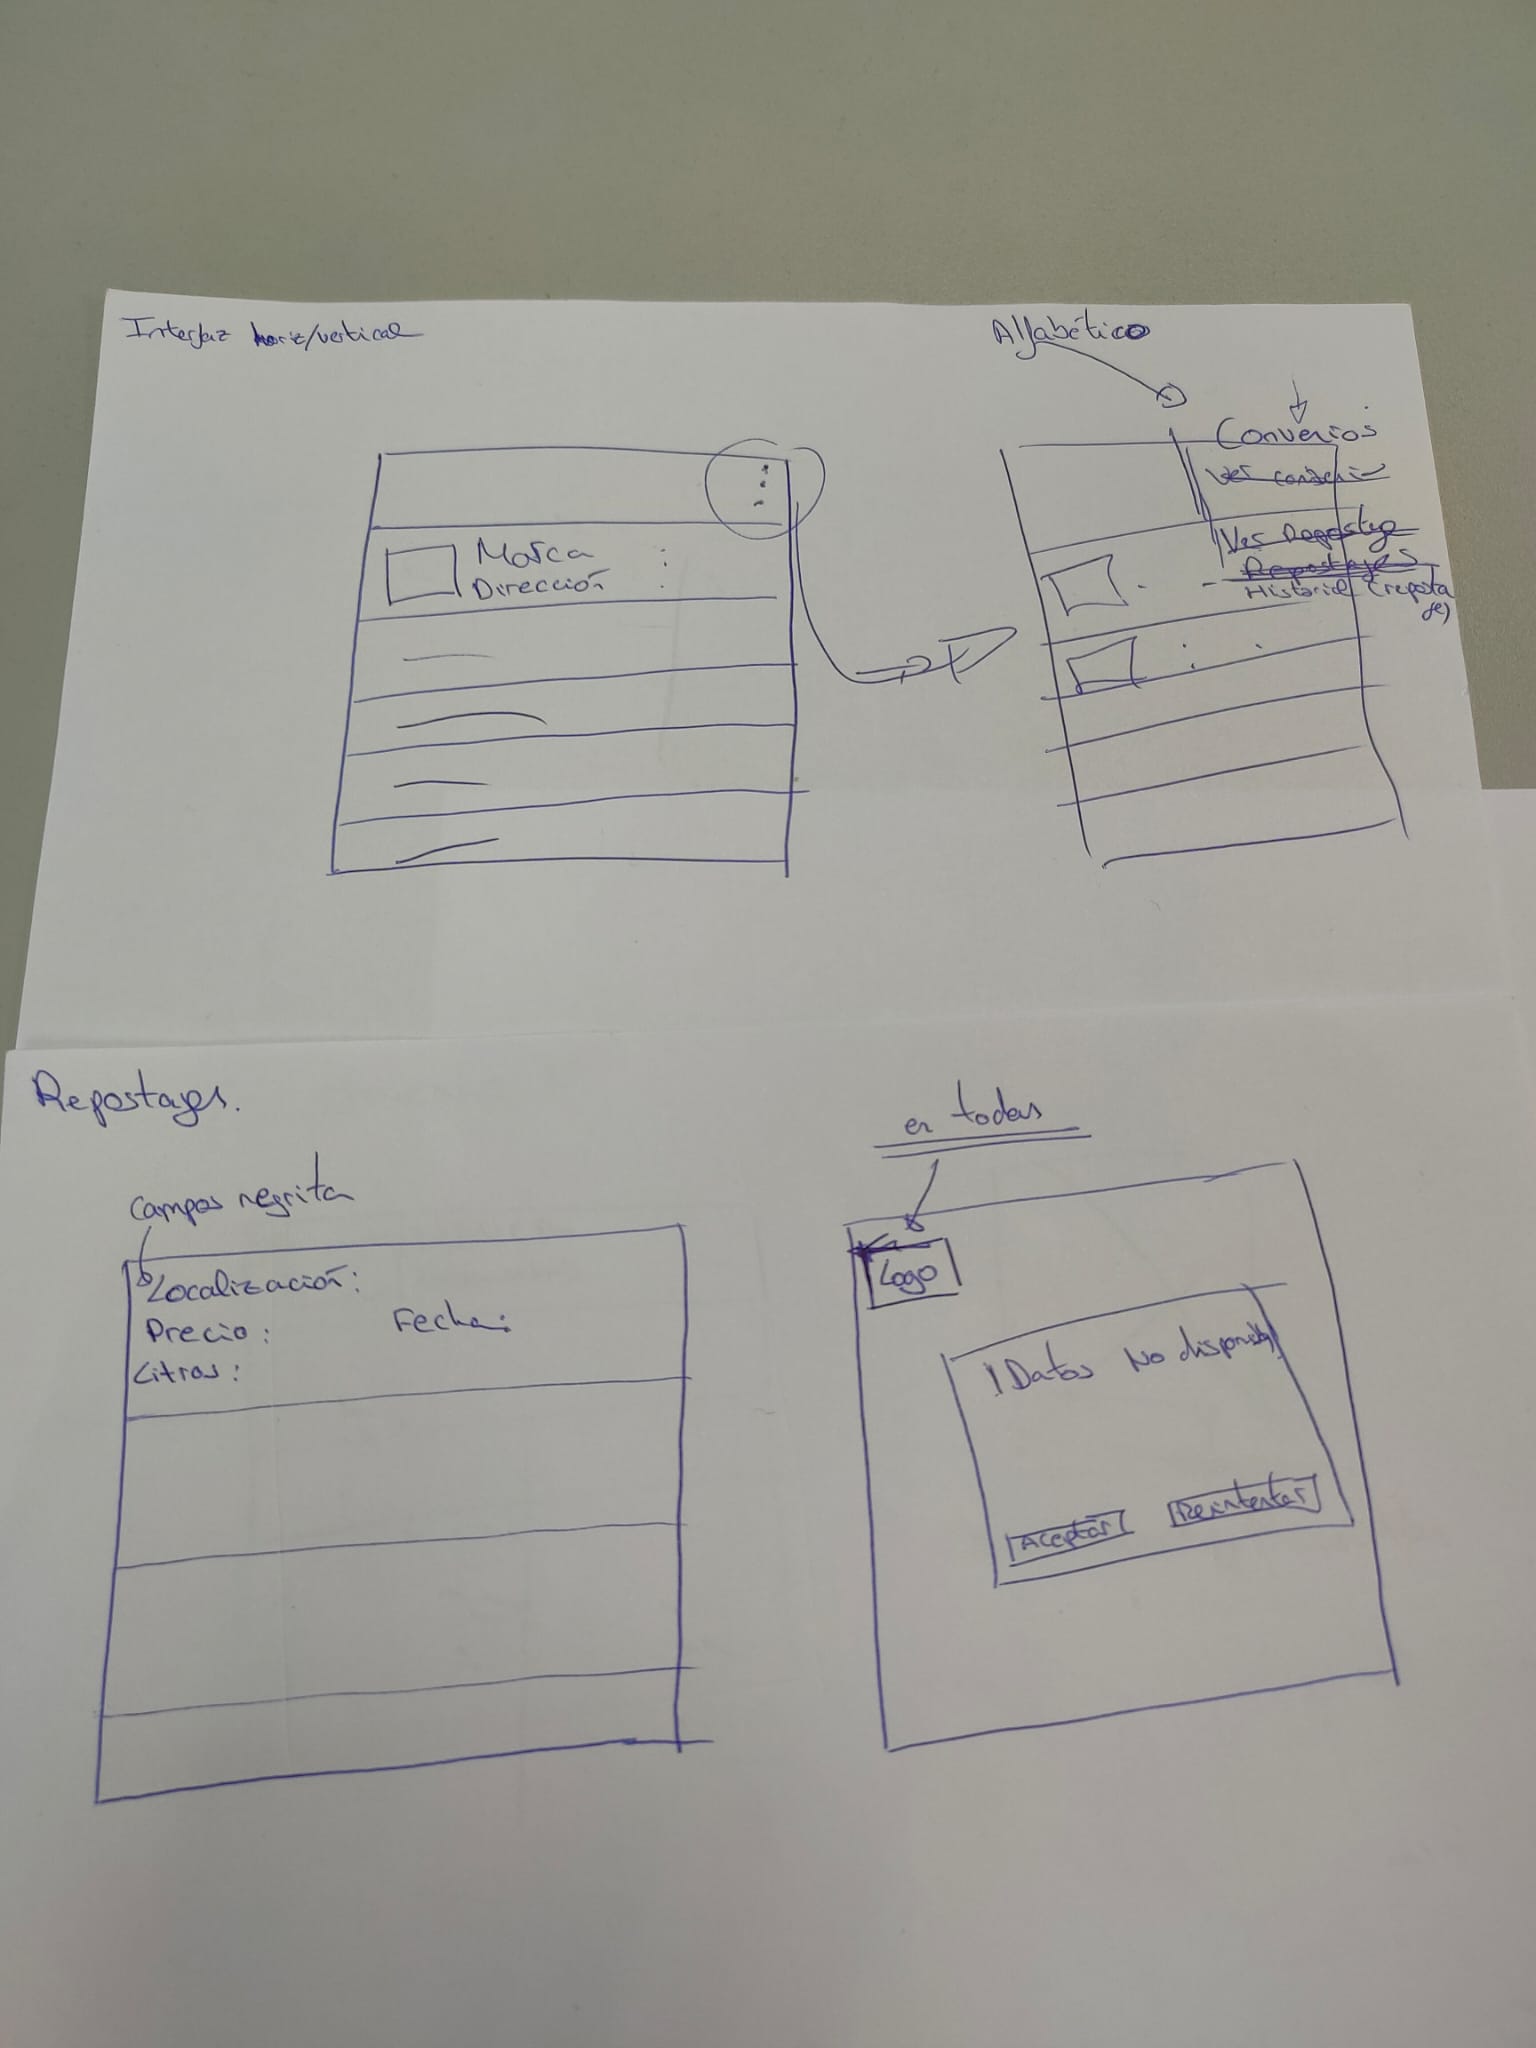 Interfaz horiz/vertical
Alfabético
Marca :
Dirección :
Convenios
Ver convenio
Ver Repostaje
Repostajes
Historial (repostaje)
Repostajes.
Campos negrita
Localización:
Precio: Fecha:
Litros:
en todas
Logo
! Datos No disponib
Aceptar Reintentar